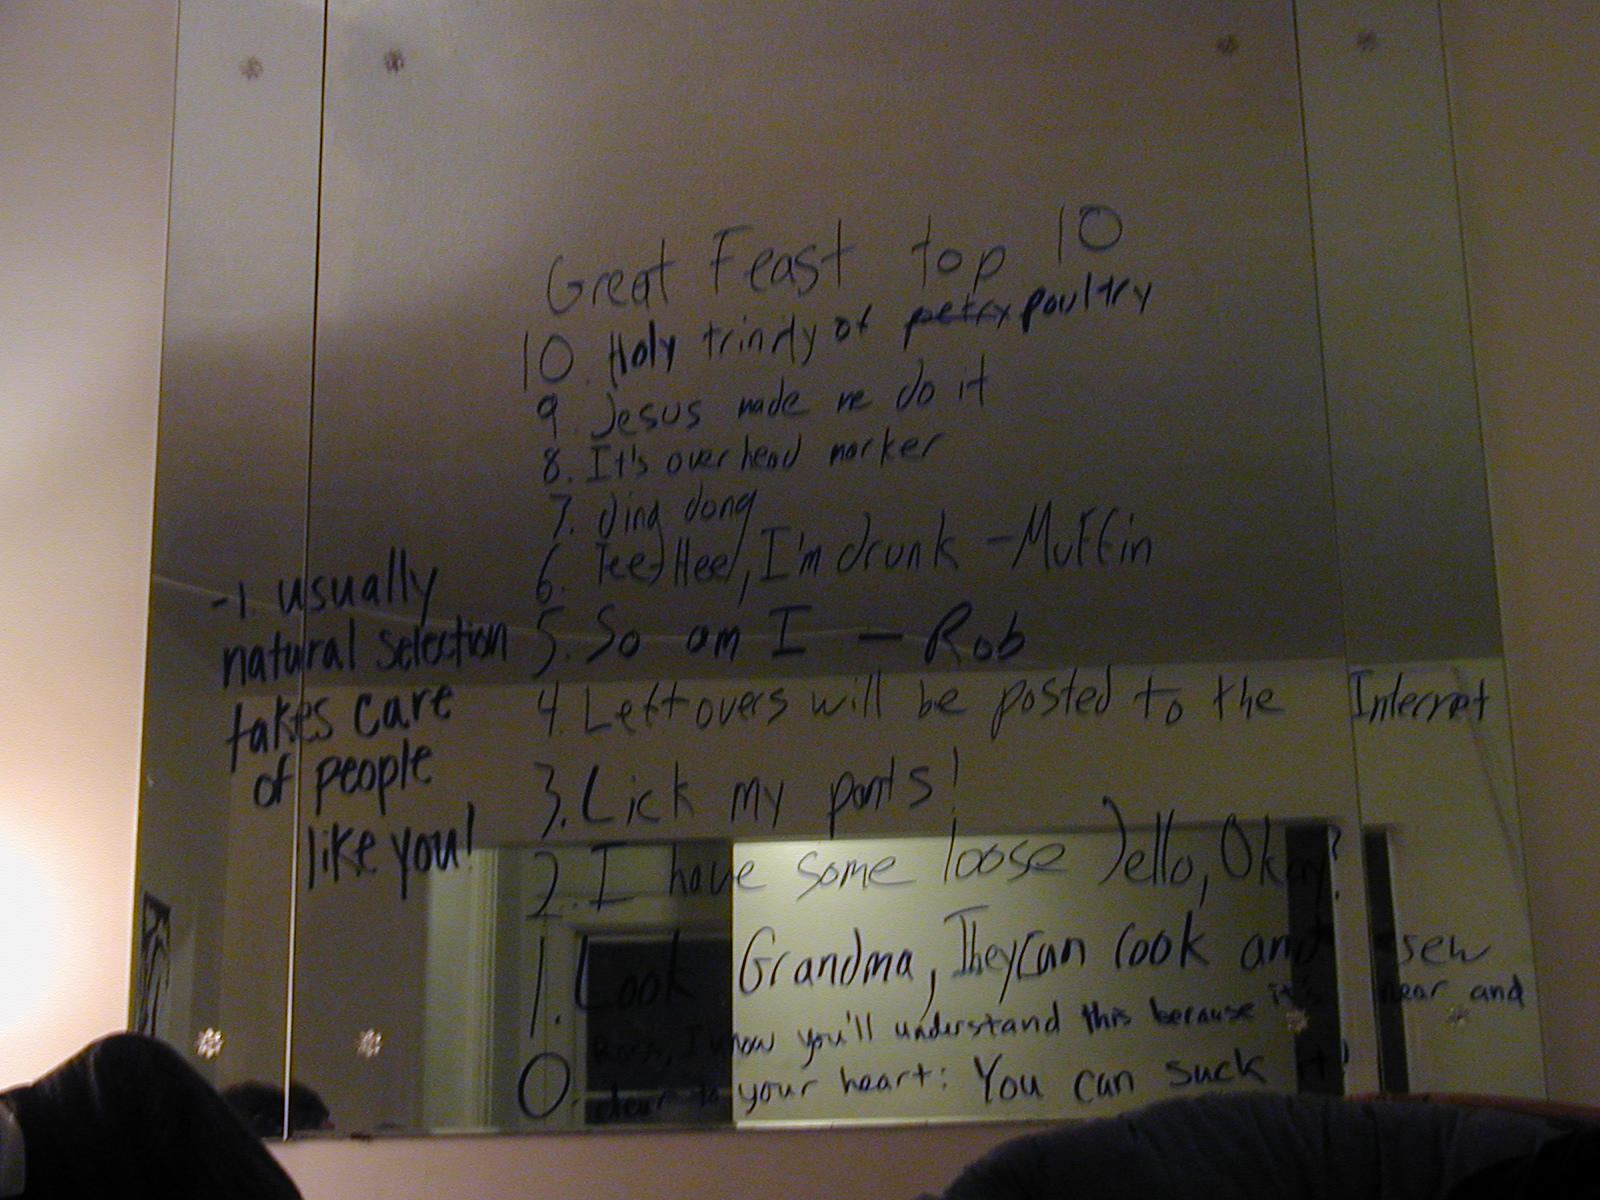 Great Feast top 10
10. Holy trinity of petry poultry
9. Jesus made me do it
8. It's overhead marker
7. ding dong
6. Tee-Hee, I'm drunk - Muffin
5. So am I - Rob
4. Leftovers will be posted to the Internet
3. Lick my pants!
2. I have some loose Jello, Okay?
1. Look Grandma, They can cook and sew
0. I know you'll understand this because it's near and
dear to your heart: You can suck it!
-1. usually
natural selection
takes care
of people
like you!